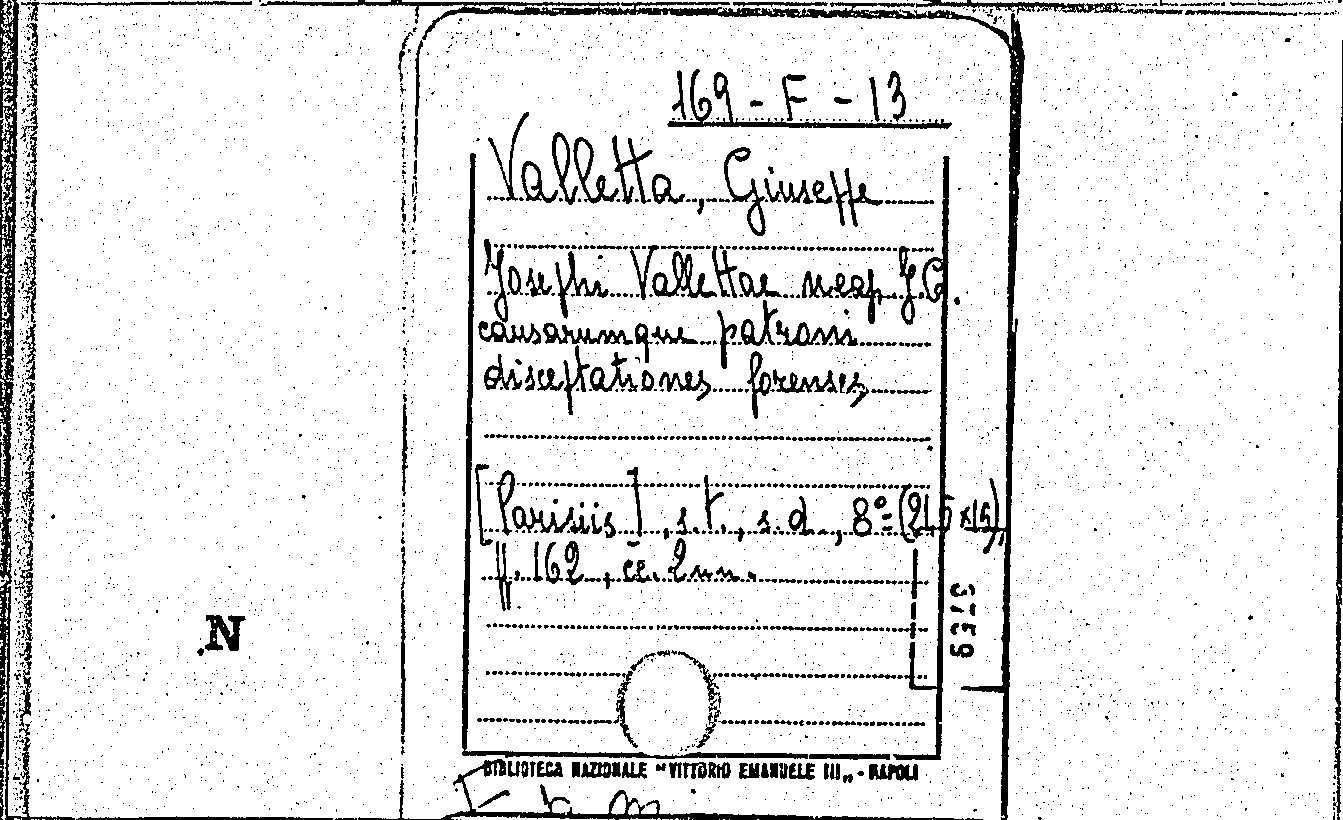 169 - F - 13
Valletta, Giuseppe
Josephi Vallettae neap. J.C.
causarumque patroni
disceptationes forenses
[Parisiis], s.t., s.d., 8°= (21,5 x 15),
pp. 162, cc. 2 nn.
3759
N
BIBLIOTECA NAZIONALE "VITTORIO EMANUELE III„ - NAPOLI